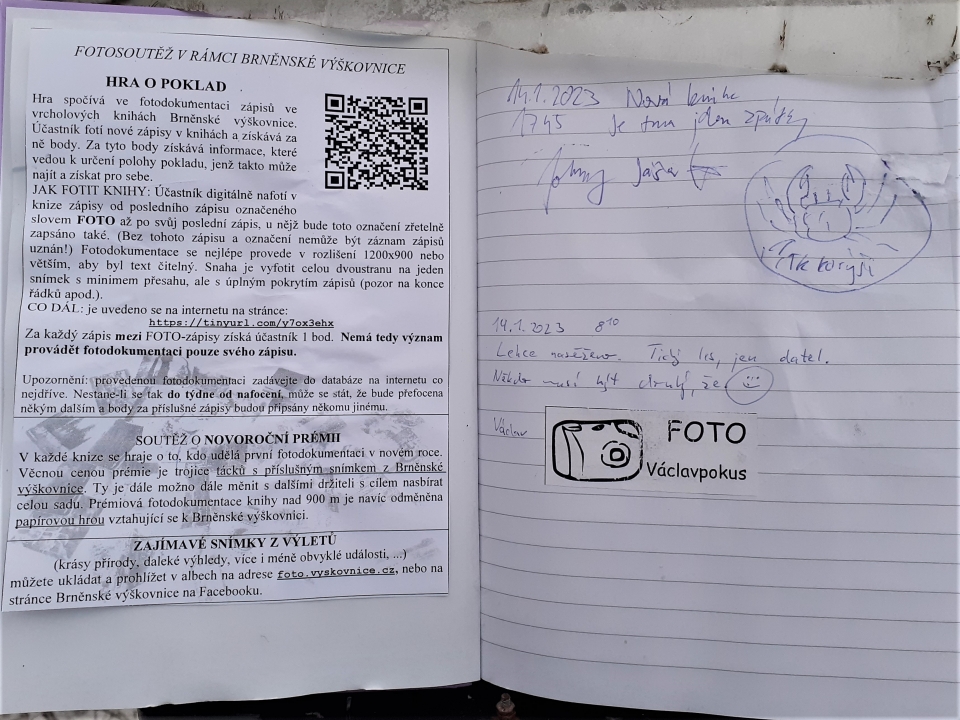 FOTOSOUTĚŽ V RÁMCI BRNĚNSKÉ VÝŠKOVNICE
HRA O POKLAD
Hra spočívá ve fotodokumentaci zápisů ve
vrcholových knihách Brněnské výškovnice.
Účastník fotí nové zápisy v knihách a získává za
ně body. Za tyto body získává informace, které
vedou k určení polohy pokladu, jenž takto může
najít a získat pro sebe.
JAK FOTIT KNIHY: Účastník digitálně nafotí v
knize zápisy od posledního zápisu označeného
slovem FOTO až po svůj poslední zápis, u nějž bude toto označení zřetelně
zapsáno také. (Bez tohoto zápisu a označení nemůže být záznam zápisů
uznán!) Fotodokumentace se nejlépe provede v rozlišení 1200x900 nebo
větším, aby byl text čitelný. Snaha je vyfotit celou dvoustranu na jeden
snímek s minimem přesahu, ale s úplným pokrytím zápisů (pozor na konce
řádků apod.).
CO DÁL: je uvedeno se na internetu na stránce:
https://tinyurl.com/y7ox3ehx
Za každý zápis mezi FOTO-zápisy získá účastník 1 bod. Nemá tedy význam
provádět fotodokumentaci pouze svého zápisu.
Upozornění: provedenou fotodokumentaci zadávejte do databáze na internetu co
nejdříve. Nestane-li se tak do týdne od nafocení, může se stát, že bude přefocena
někým dalším a body za příslušné zápisy budou připsány někomu jinému.
SOUTĚŽ O NOVOROČNÍ PRÉMII
V každé knize se hraje o to, kdo udělá první fotodokumentaci v novém roce.
Věcnou cenou prémie je trojice tácků s příslušným snímkem z Brněnské
výškovnice. Ty je dále možno dále měnit s dalšími držiteli s cílem nasbírat
celou sadu. Prémiová fotodokumentace knihy nad 900 m je navíc odměněna
papírovou hrou vztahující se k Brněnské výškovnici.
ZAJÍMAVÉ SNÍMKY Z VÝLETŮ
(krásy přírody, daleké výhledy, více i méně obvyklé události, ...)
můžete ukládat a prohlížet v albech na adrese foto.vyskovnice.cz, nebo na
stránce Brněnské výškovnice na Facebooku.
14.1.2023 Nová kniha
1745 Je tma jdem zpátky
TK korýši
14.1.2023 810
Lehce nasněženo. Tichý les, jen datel.
Někdo musí být druhý, že
Václav
FOTO
Václavpokus